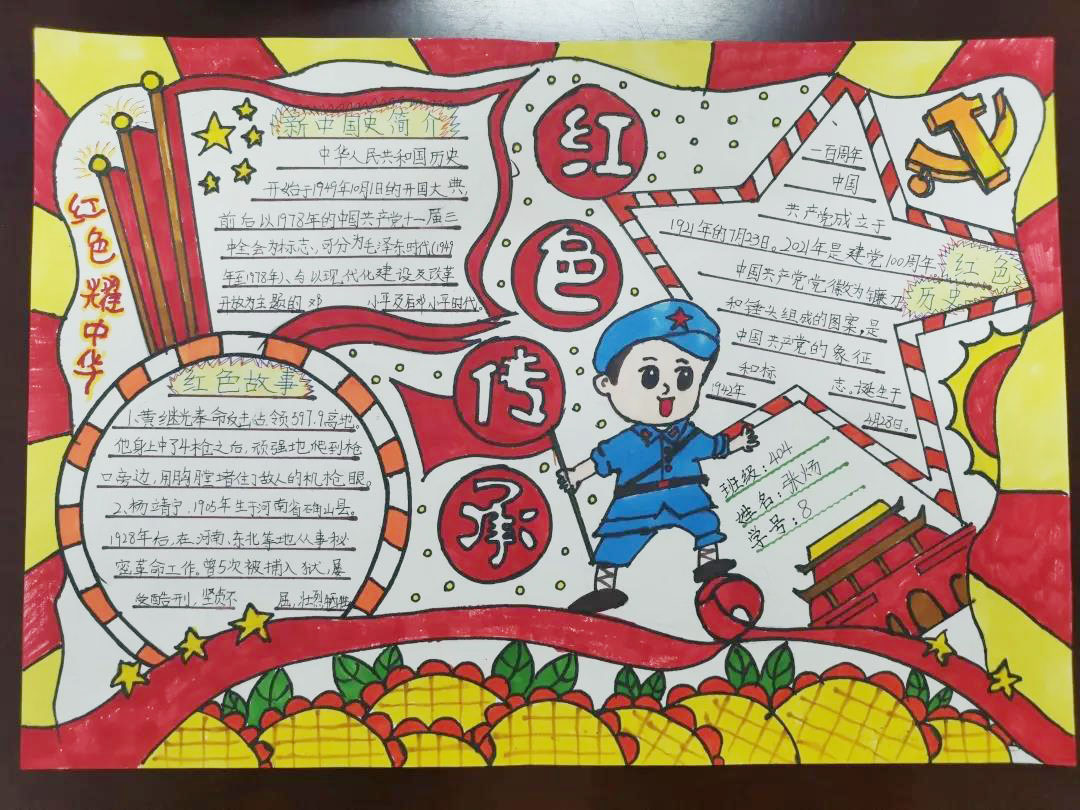 红色传承
红色耀中华
新中国史简介
中华人民共和国历史
开始于1949年10月1日的开国大典,
前后以1978年的中国共产党十一届三
中全会为标志,可分为毛泽东时代(1949
年至1978年)、与以现代化建设及改革
开放为主题的邓小平及后邓小平时代。
红色故事
1、黄继光奉命攻击占领597.9高地。
他身上中了4枪之后,顽强地爬到枪
口旁边,用胸膛堵住了敌人的机枪眼。
2、杨靖宇,1905年生于河南省确山县。
1928年后,在河南、东北等地从事秘
密革命工作。曾5次被捕入狱,屡
受酷刑,坚贞不屈,壮烈牺牲
红色
历史
一百周年
中国
共产党成立于
1921年的7月23日。2021年是建党100周年。
中国共产党党徽为镰刀
和锤头组成的图案,是
中国共产党的象征
和标志。诞生于
1942年4月28日。
班级:404
姓名:张炀
学号:8